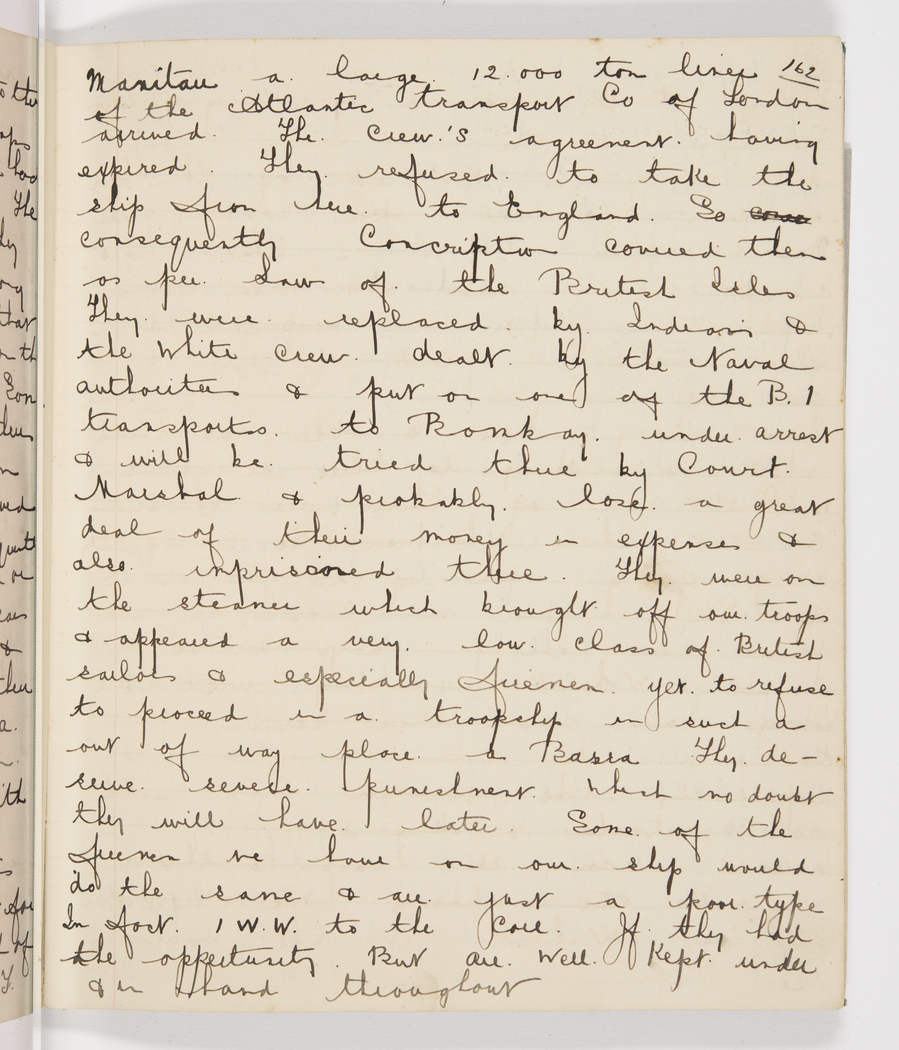 162
Manitau a large. 12.000 ton liner
of the Atlantic transport Co of London
arrived. The. Crew.'s agreement. having
expired. They. refused. to take the
ship from here. to England. So
consequently Concription covered them
as per. Law of. the British Isles
They. were. replaced. by. Indians &
the White Crew. dealt. by the Naval
authorities & put on one of the B. I
transports. to Bombay. under. arrest
& will be. tried there by Court.
Marshal & probably. lose. a great
deal of their money in expenses &
also. imprisoned there. They. were on
the steamer which brought off our. troops
& appeared a very. low. class of. British
sailors & especially firemen. yet. to refuse
to proceed in a. troopship in such a
out of way place. a Basra They. de-
serve. severe. punishment. Which no doubt
they will have. later. Some. of the
firemen we have on our. ship would
do the same & are. just a poor. type
In fact. I W.W. to the Core. If they had
the oppertunity. But are. Well. Kept. under
& in hand throughout